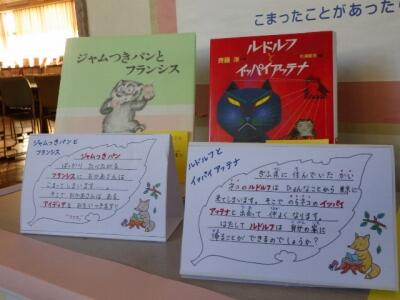 こまったことがあった
ジャムつきパンと
フランシス
ルドルフ
と
イッパイアッテナ
斉藤 洋
ジャムつきパンと
フランシス
ジャムつきパン
ばっかり たべたがる
フランシスに おかあさんは
こまってしまいます…。
そこで おかあさんは ある
アイディアを おもいつきます!!
ルドルフと
イッパイアッテナ
ぎふ県に 住んでいた
ネコのルドルフは ひょんなことから 東京に
来てしまいます。そこで のらネコの イッパイ
アッテナと 出会って 仲よく なります。
はたして ルドルフは 自分の家に
帰ることが できるのでしょうか?